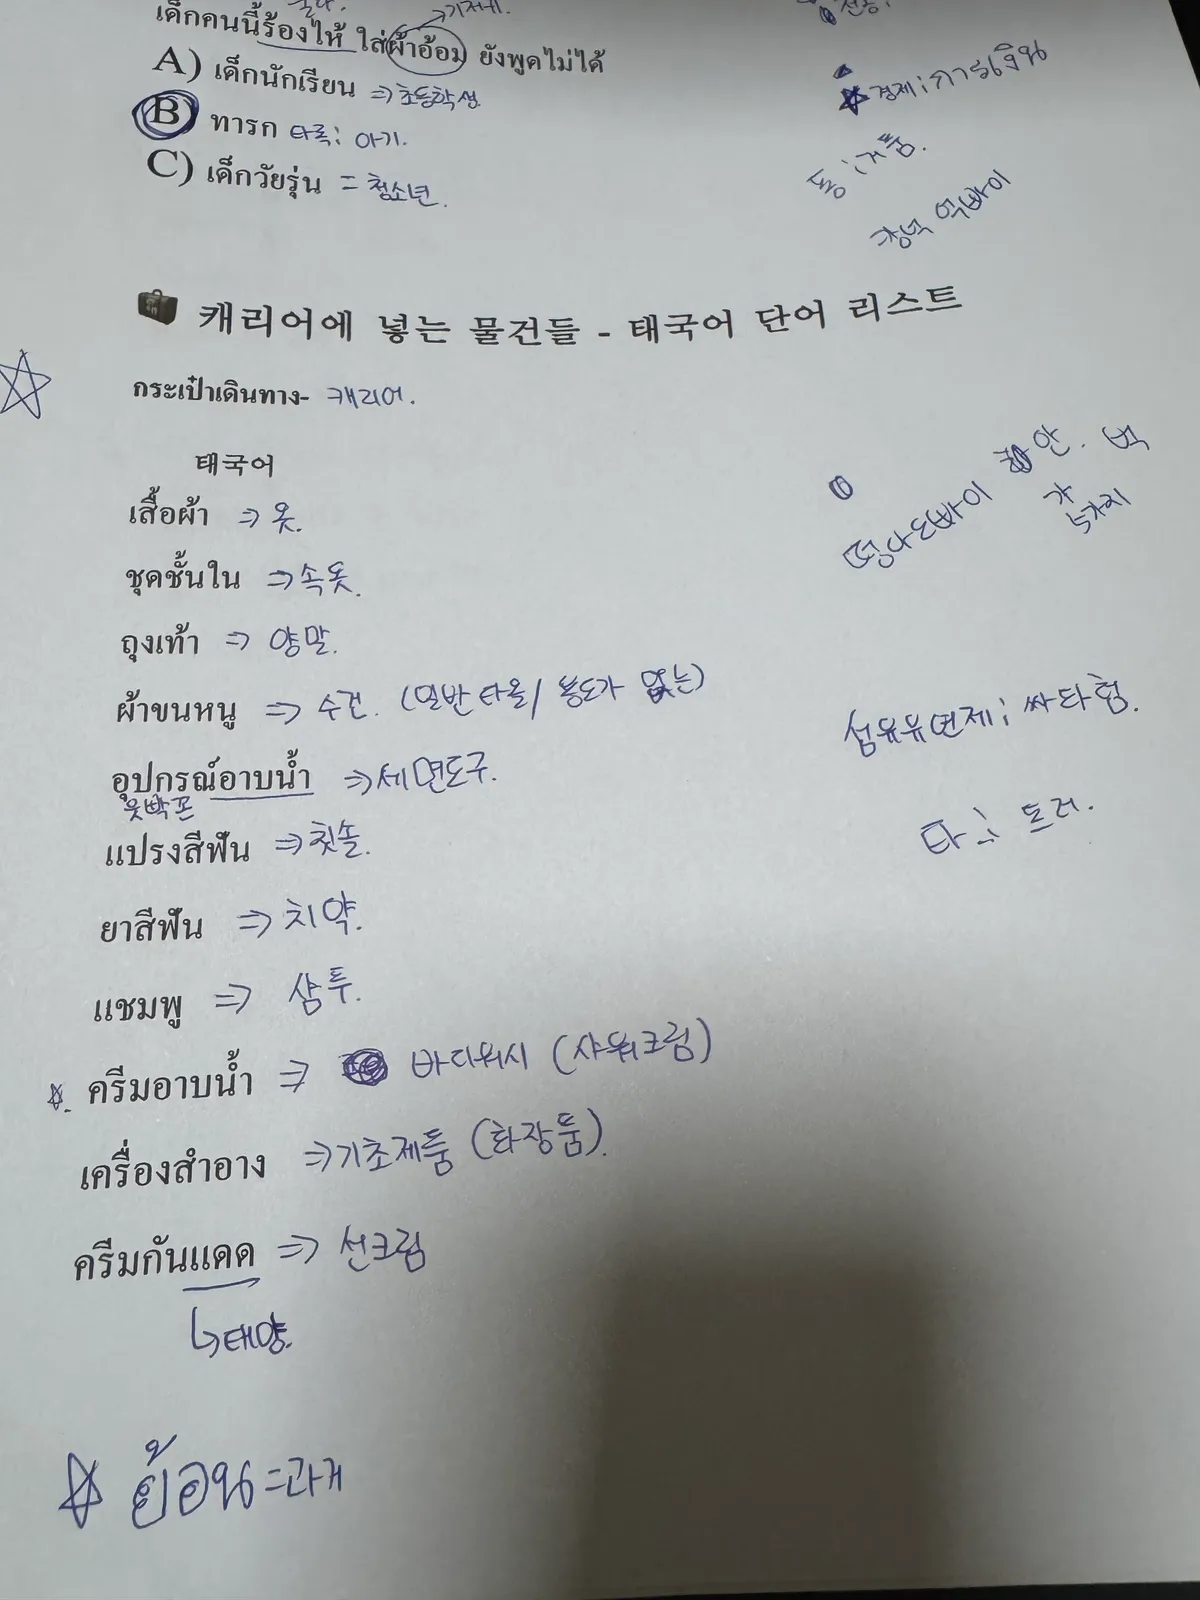 เด็กคนนี้ร้องไห้ ใส่ผ้าอ้อม ยังพูดไม่ได้
→기저귀.
A) เด็กนักเรียน ⇒초등학생
B) ทารก 타록; 아기.
C) เด็กวัยรุ่น = 청소년.
경제; การเงิน
캐리어에 넣는 물건들 - 태국어 단어 리스트
กระเป๋าเดินทาง- 캐리어.
태국어
เสื้อผ้า ⇒ 옷.
ชุดชั้นใน ⇒ 속옷.
ถุงเท้า ⇒ 양말.
ผ้าขนหนู ⇒ 수건. (일반 타올/ 용도가 없는)
อุปกรณ์อาบน้ำ ⇒세면도구.
웃빡꼰
แปรงสีฟัน ⇒칫솔.
ยาสีฟัน ⇒ 치약.
แชมพู ⇒ 샴푸.
ครีมอาบน้ำ ⇒ 바디워시 (샤워크림)
เครื่องสำอาง ⇒기초제품 (화장품).
ครีมกันแดด ⇒ 선크림
↳태양.
섬유유연제; 싸타험.
ย้อน=과거